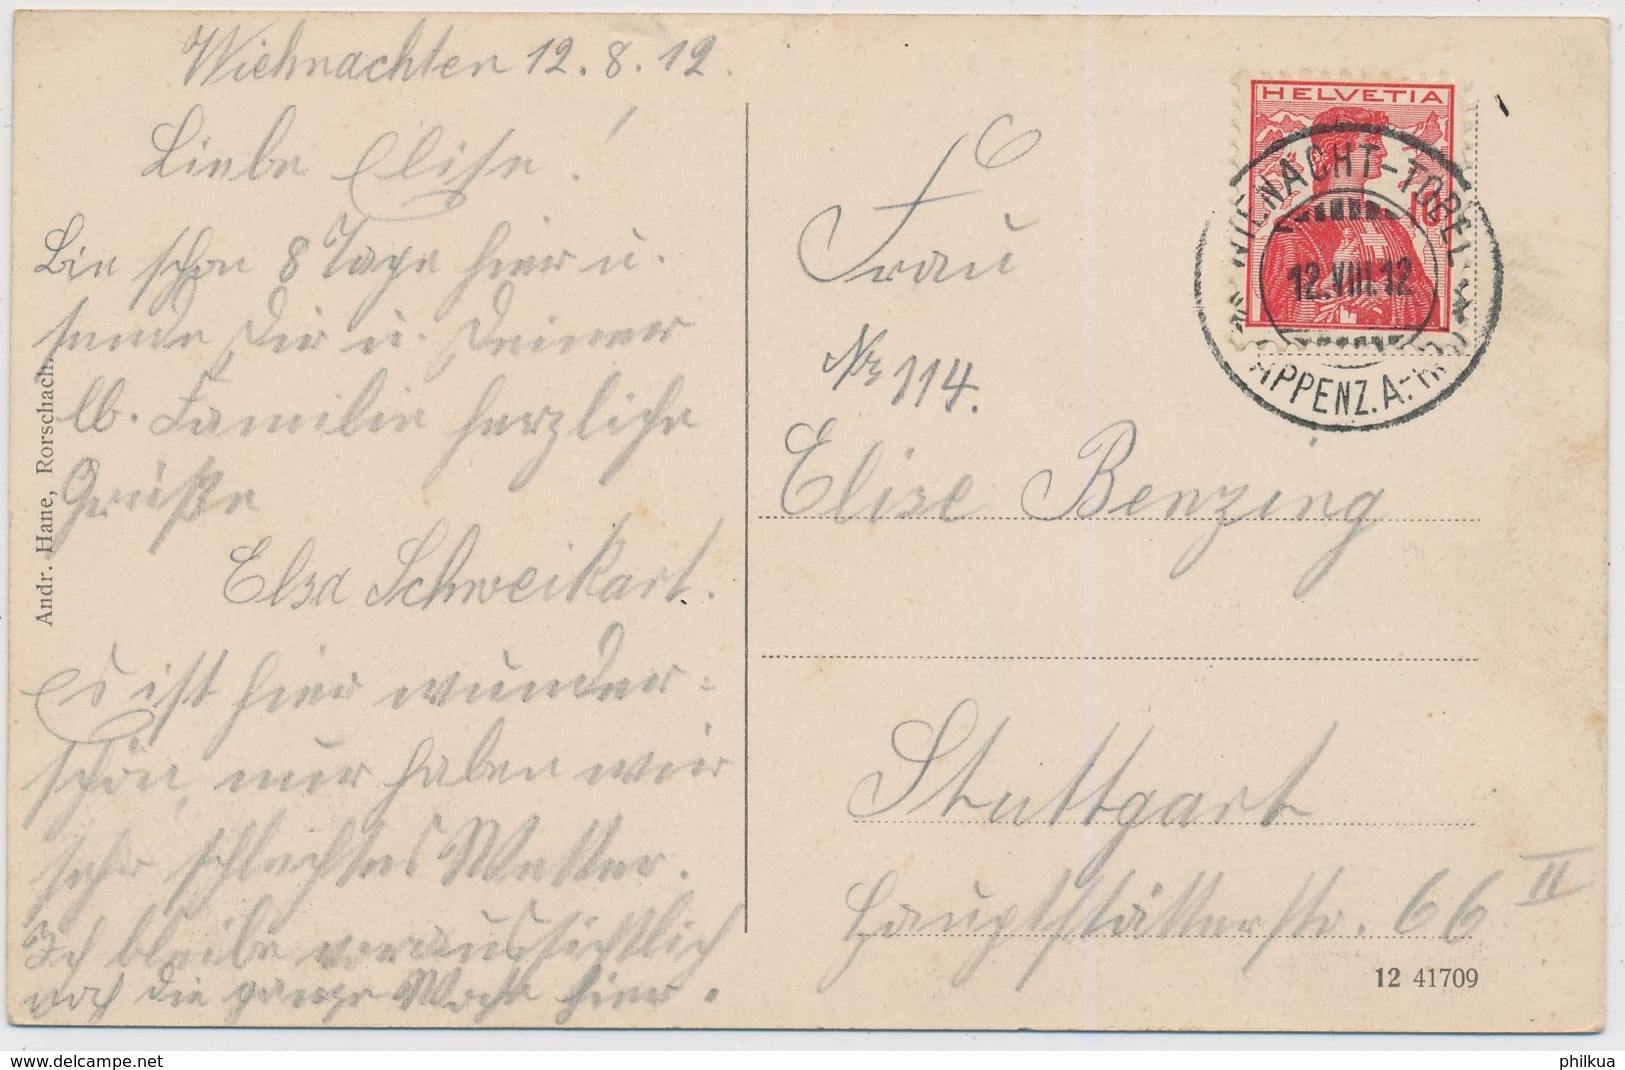 Wiehnachten 12.8.12.
Liebe Elise!
Bin schon 8 Tage hier u.
sende Dir u. Deiner
lb. Familie herzliche
Grüße
Elsa Schweikart.
Es ist hier wunder=
schön, nur haben wir
sehr schlechtes Wetter.
Ich bleibe voraussichtlich
noch die ganze Woche hier.
Andr. Hane, Rorschach.
HELVETIA
10
WIENACHT-TOBEL
12.VIII.12
(APPENZ.A.-RH.)
Frau
No 114.
Elise Benzing
Stuttgart
Hauptstätterstr. 66 II
12 41709
delcampe.net
philkua